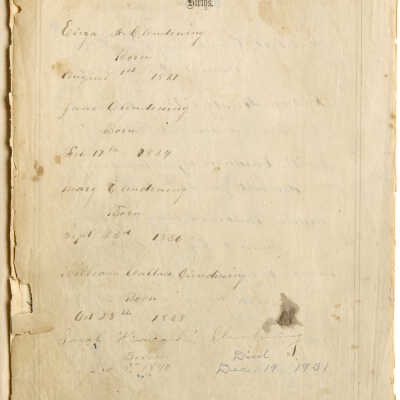 Births.
Eliza A Clendening
Born
August 1st 1821
Jane Clendening
Born
Feb 17th 1824
Mary Clendening
Born
Sept 1826
William Wallace Clendening
Born
Oct 28th 1828
Sarah Clendening
Born Died
1840 Dec. 19, 1931